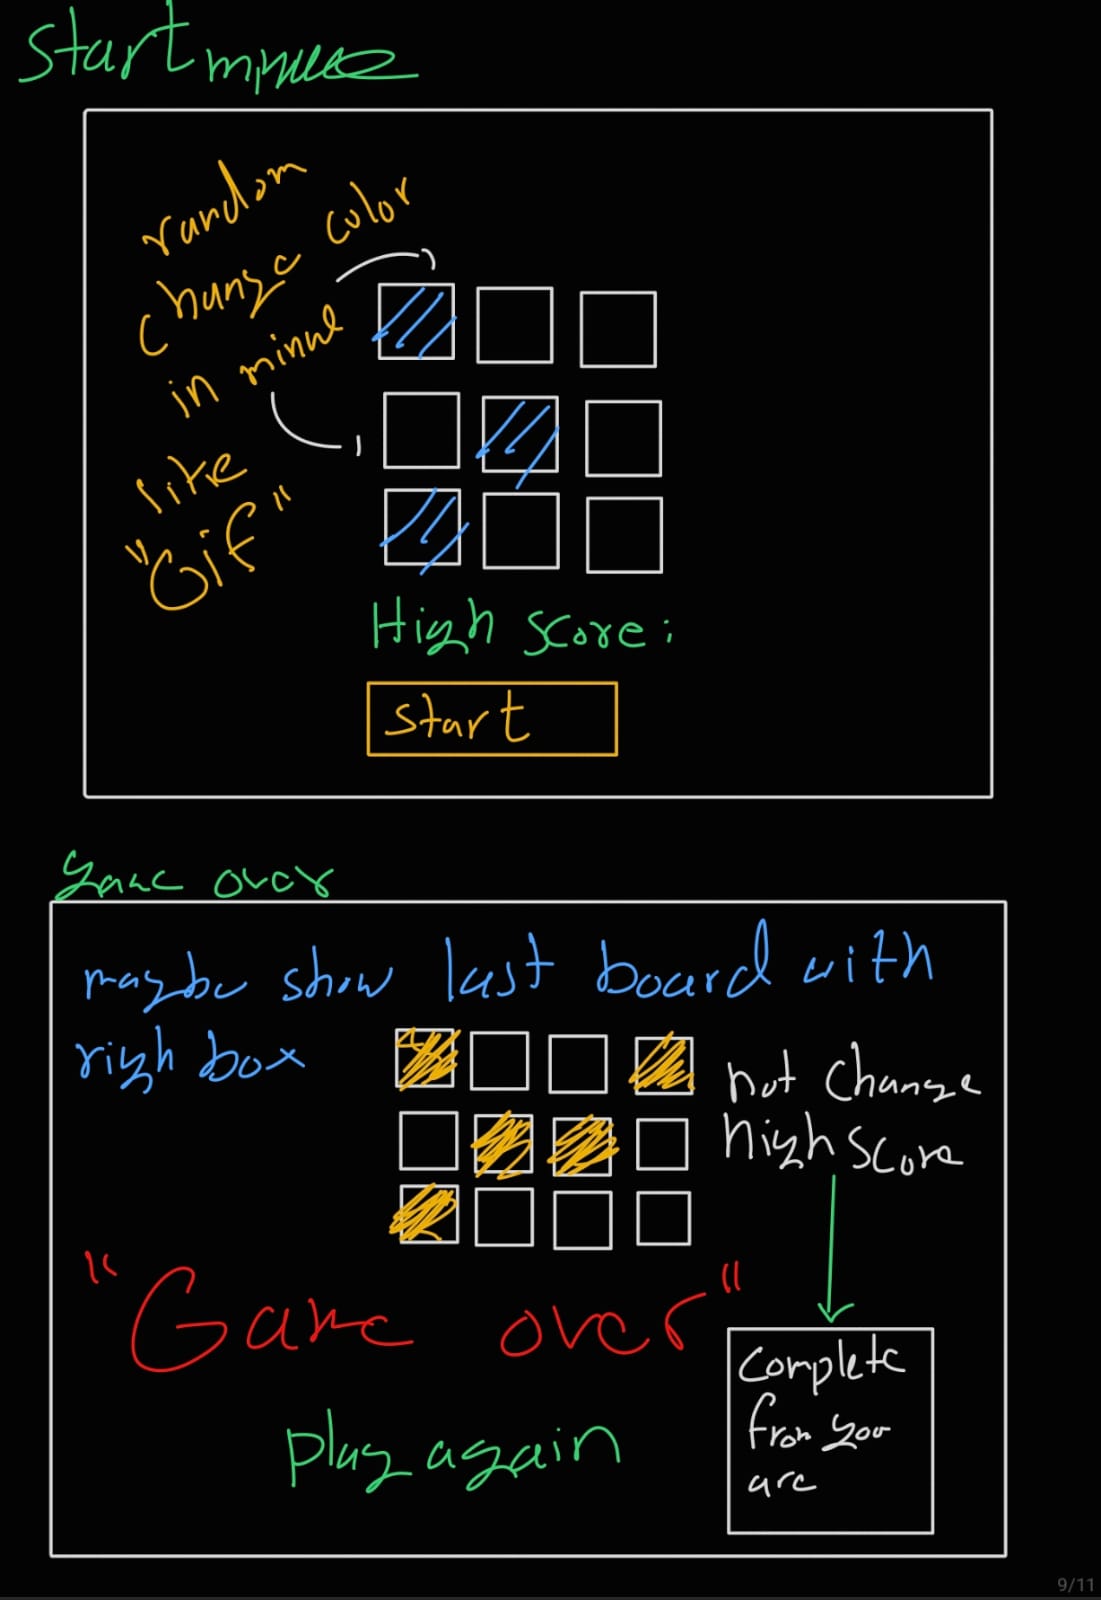 Start
random
change color
in minue
like
"Gif"
High score:
Start
game over
maybe show last board with
righ box
not change
high score
"Game over"
Complete
from you
are
play again
9/11